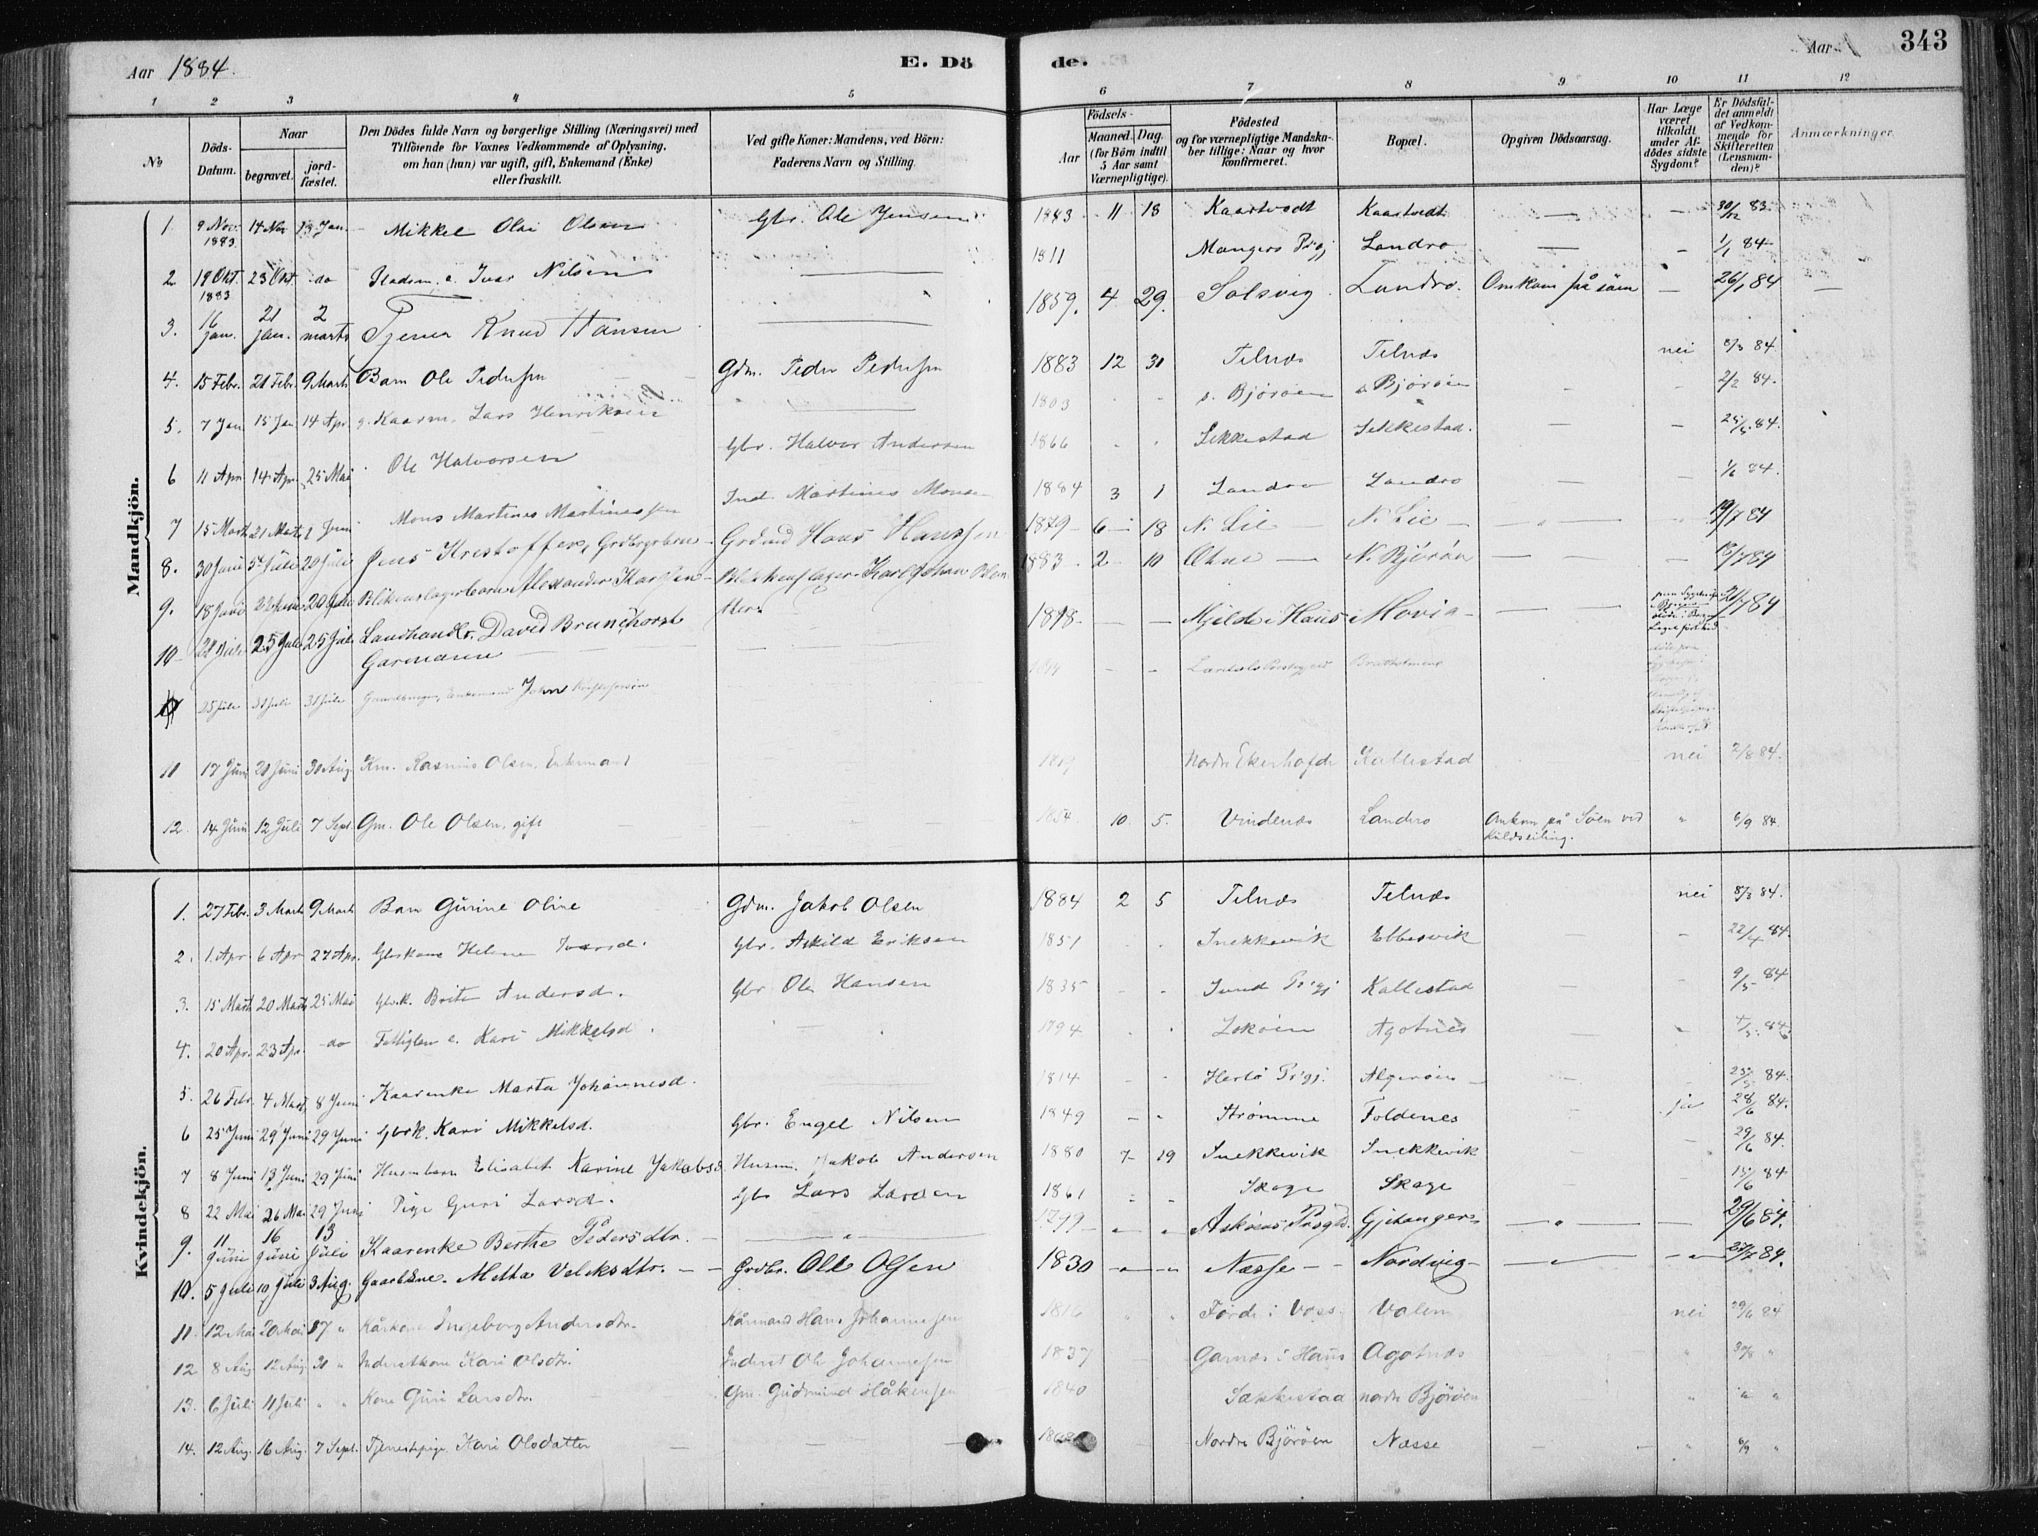 Aar 1884.
E. Dö
de.
Aar
343
1 2 3 4 5 6 7 8 9 10 11 12
No
Döds-Datum.
Naar
begravet.
jord-fæstet.
Den Dödes fulde Navn og borgerlige Stilling (Næringsvei) med
Tilföiende for Voxnes Vedkommende af Oplysning,
om han (hun) var ugift, gift, Enkemand (Enke)
eller fraskilt.
Ved gifte Koner: Mandens, ved Börn:
Faderens Navn og Stilling.
Födsels-
Aar
Maaned. Dag.
(for Börn indtil
5 Aar samt
Værnepligtige).
Födested
og for værnepligtige Mandska-
ber tillige: Naar og hvor
konfirmeret.
Bopæl.
Opgiven Dödsaarsag.
Har Læge
været
tilkaldt
under Af-
dödes sidste
Sygdom?
Er Dödsfal-
det anmeldt
af Vedkom-
mende for
Skifteretten
(Lensman-
den)?
Anmærkninger.
Mandkjön.
1. 9 Nov. 1883 14 Nov 13 Jan. Mikkel Olai Olsen Gbr. Ole Jensen 1883 11 18 Kaartvedt Kaartvedt — — 30/12 83.
2 19 Okt. 1883 23 Okt. do Ivar Nilsen — 1811 Mangers Prgj Landro — — 1/1 84
3. 16 jan. 21 jan. 2 marts Tjener Knud Hansen — 1859. 4 29. Solsvig Landro. Omkom på söen — 26/1 84 —
4. 15 Febr. 21 Febr. 9 Marts Barn Ole Pedersen Gdm. Peder Pedersen 1883 12 31 Telnæs Telnæs nei 8/3 84
5. 7 Jan 15 Jan 14 Apr. g. Kaarm. Lars Henriksen — 1803 s. Björöen s. Björöen — — 2/2 84.
6 11 Apr 14 Apr. 25 Mai Ole Halvorsen Gbr. Halvor Andersen 1866 Sekkestad Sekkestad. — — 25/5 84.
7 15 Marts 21 Marts 1 Juni Mons Martines Martinessen Ind. Martines Monsen 1884 3 1 Landro Landro — — 1/6 84.
8. 30 Juni 5t Juli 20 Juli Jens Kristoffer, Grdbrgrbarn Grdmd Hans Hanssen 1879 6 18 N. Lie N. Lie — 19/7 84
9. 18 Juni 22 Juni 20 Juli Blikkenslagerbarn Alexander Karlsen Blikkenslager Karl Johan Olsen 1883. 2 10 Ohne — N. Björöen — — 13/7 84
10 21 Juli 25 Juli 25 Juli Landhandlr. David Brunchorst Garmann 1818 — — Mjelde i Haus Movig — 21/7 84
25 Juli 31 Juli 31 Juli Enkemand John Kristofersøn Lærdals Præstegjeld Brattholmen
11 17 Juni 21 Juni 30 Aug. Km. Rasmus Olsen, Enkemand 1819 Nordre Ekerhofde Kallestad nei 2/8 84.
12. 14 Juni 12 Juli 7 Sept. Gm. Ole Olsen, gift 1854. 10. 5. Vindenes Landro Omkom på Søen ved Kuldseiling. " 6/9 84.
Kvindekjön.
1. 27 Febr. 3 Marts 9 Marts Barn Gurine Oline Gdm. Jakob Olsen 1884 2 5 Telnæs Telnæs nei 8/3 84.
2. 1. Apr 6 Apr 27 Apr. Gbrkone Helene Ivarsd. Gbr. Askild Eriksen 1851 Snekkevik Ebbesvik — — 22/4 84.
3. 15 Marts 20 Marts 25 Mai Gbrk. Brite Andersd. Gbr Ole Hansen 1835 Sund Prgj Kallestad — — 9/5 84
4. 20 Apr. 23 Apr. do Fattiglem e. Kari Mikkelsd. — 1794 Agotnes 84
5. 26 Febr. 4 Marts 8 Juni Kaarenke Marta Johannesd. 1814 Herlö Prgj. Algeröen — 25/5 84.
6 25 Juni 29 Juni 29 Juni Gbrk. Kari Mikkelsd. Gbr. Engel Nilsen 1849 Strømme Foldenes ja 28/6 84.
7 8 Juni 13 Juni 29 Juni Husmbarn Elisabet Karine Jakobsd. Husm. Jakob Andersen 1880 7 19 Snekkevik Snekkevik — 29/6 84.
8 22 Mai 26 Mai 29 Juni Pige Guri Larsd. Gbr Lars Larsen 1861 Skage Skage 15/6 84
9. 11 Juni 16 Juni 13 Juli Kaarenke Berthe Pedersdtr. — 1799 Askøens Prsgld. Gjetanger — 29/6 84.
10. 5 Juli 10 Juli 3 Aug. Metta Velriksdtr. Grdbr. Ole Olsen 1830 Næsse Nordvig — 27/7 84.
11. 12 Mai 20 Mai 17 " Kårkone Ingeborg Andersdtr. Kårmand Hans Johannessen 1816 Førde i Voss Valen nei 29/6 84
12 8 Aug 12 Aug. 31 " Inderstkone Kari Olsdtr. Inderst Ole Johannessen 1837 Garnæs i Haus Agotnæs " 30/8 "
13. 6 Juli 11 Juli " " Kone Guri Larsdtr. Gm. Gudmund Håkensen 1840 Sækkestad nordre Björöen " " "
14. 12 Aug. 16 Aug. 7 Sept. Tjenestepige Kari Olsdatter — 1868 Nordre Björöen Næsse — " 6/9 "